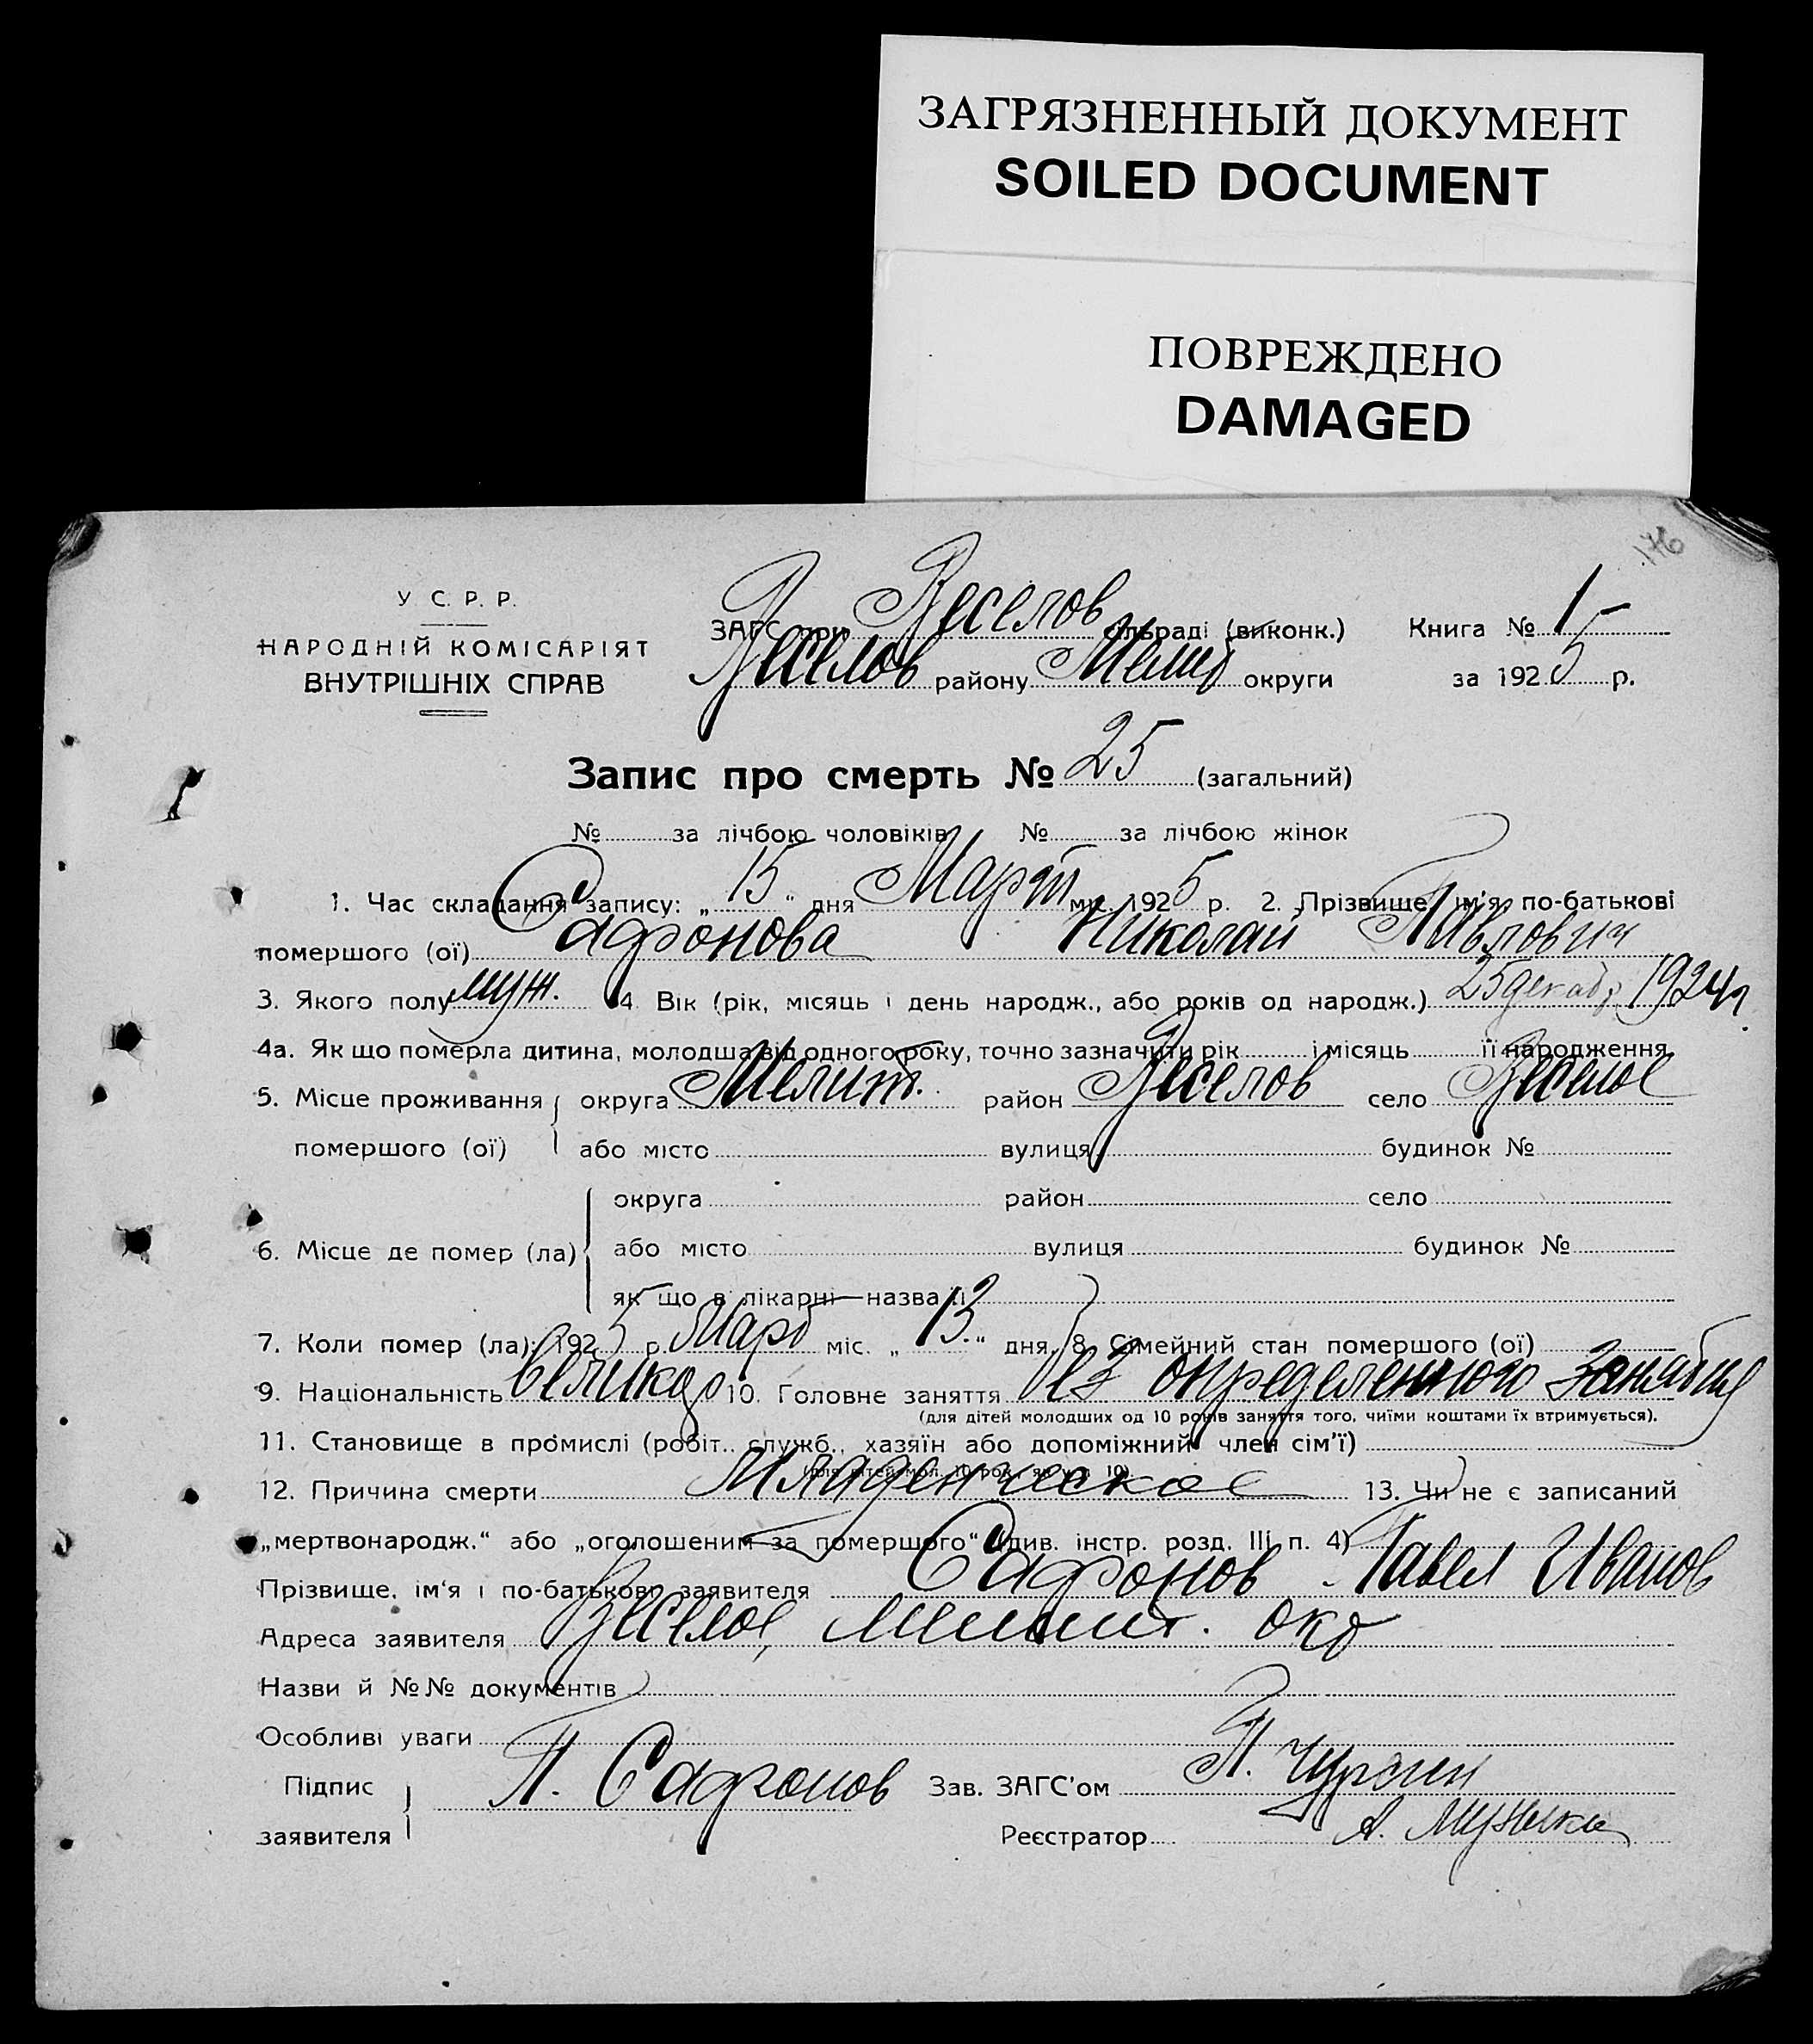 ЗАГРЯЗНЕННЫЙ ДОКУМЕНТ
SOILED DOCUMENT
ПОВРЕЖДЕНО
DAMAGED
176
У С. Р. Р.
НАРОДНІЙ КОМІСАРІЯТ
ВНУТРІШНІХ СПРАВ
ЗАГС при Веселов сільраді (виконк.) Книга № 1-
Веселов району Мелит округи за 1925 р.
Запис про смерть № 25 (загальний)
№ за лічбою чоловіків № за лічбою жінок
1. Час складання запису: „ 15 " дня Март мц. 1925 р. 2. Прізвище, ім'я, по-батькові
помершого (ої) Сафонова Николай Павлович
3. Якого полу муж. 4 Вік (рік, місяць і день народж., або років од народж.) 25 декаб. 1924 г.
4а. Як що померла дитина, молодша від одного року, точно зазначити рік і місяць її народження
5. Місце проживання округа Мелит. район Веселов село Веселое
помершого (ої) або місто вулиця будинок №
округа район село
6. Місце де помер (ла) або місто вулиця будинок №
як що в лікарні—назва її
7. Коли помер (ла): 1925 р. Март міс. „ 13. " дня, 8. Сімейний стан помершого (ої)
9. Національність великор 10. Головне заняття без определенного занятия
(для дітей молодших од 10 років заняття того, чиїми коштами їх втримується).
11. Становище в промислі (робіт., служб., хазяїн або допоміжний член сім'ї)
(для дітей мол. 10 рок., як у п. 10).
12. Причина смерти Младенческое 13. Чи не є записаний
„мертвонародж." або „оголошеним за помершого" (див. інстр. розд. III п. 4)
Прізвище, ім'я і по-батькові заявителя Сафонов Павел Иванов
Адреса заявителя Веселое, Мелит. окр
Назви й №№ документів
Особливі уваги
Підпис П. Сафонов Зав. ЗАГС'ом П.
заявителя Реєстратор А.